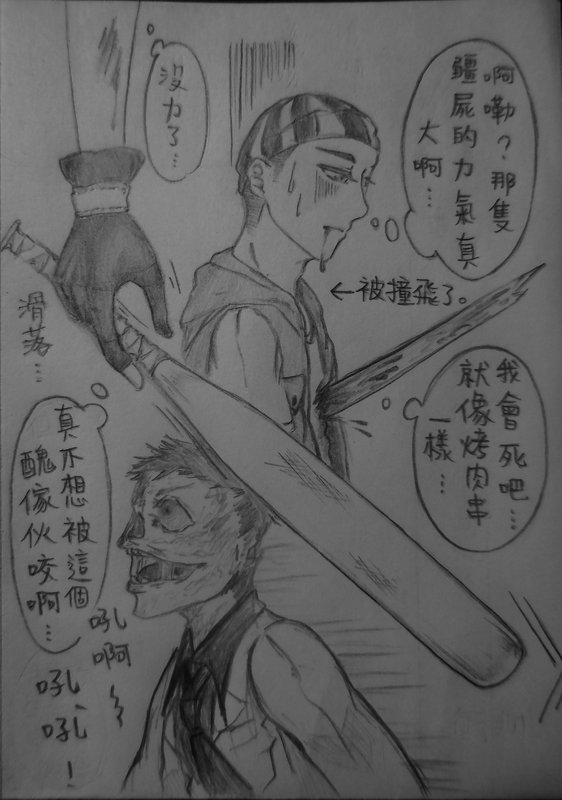 啊嘞？那隻
殭屍的力氣真
大啊…
沒力了…
←被撞飛了。
滑落…
我會死吧…
就像烤肉串
一樣…
真不想被這個
醜傢伙咬啊…
吼啊~
吼、吼！